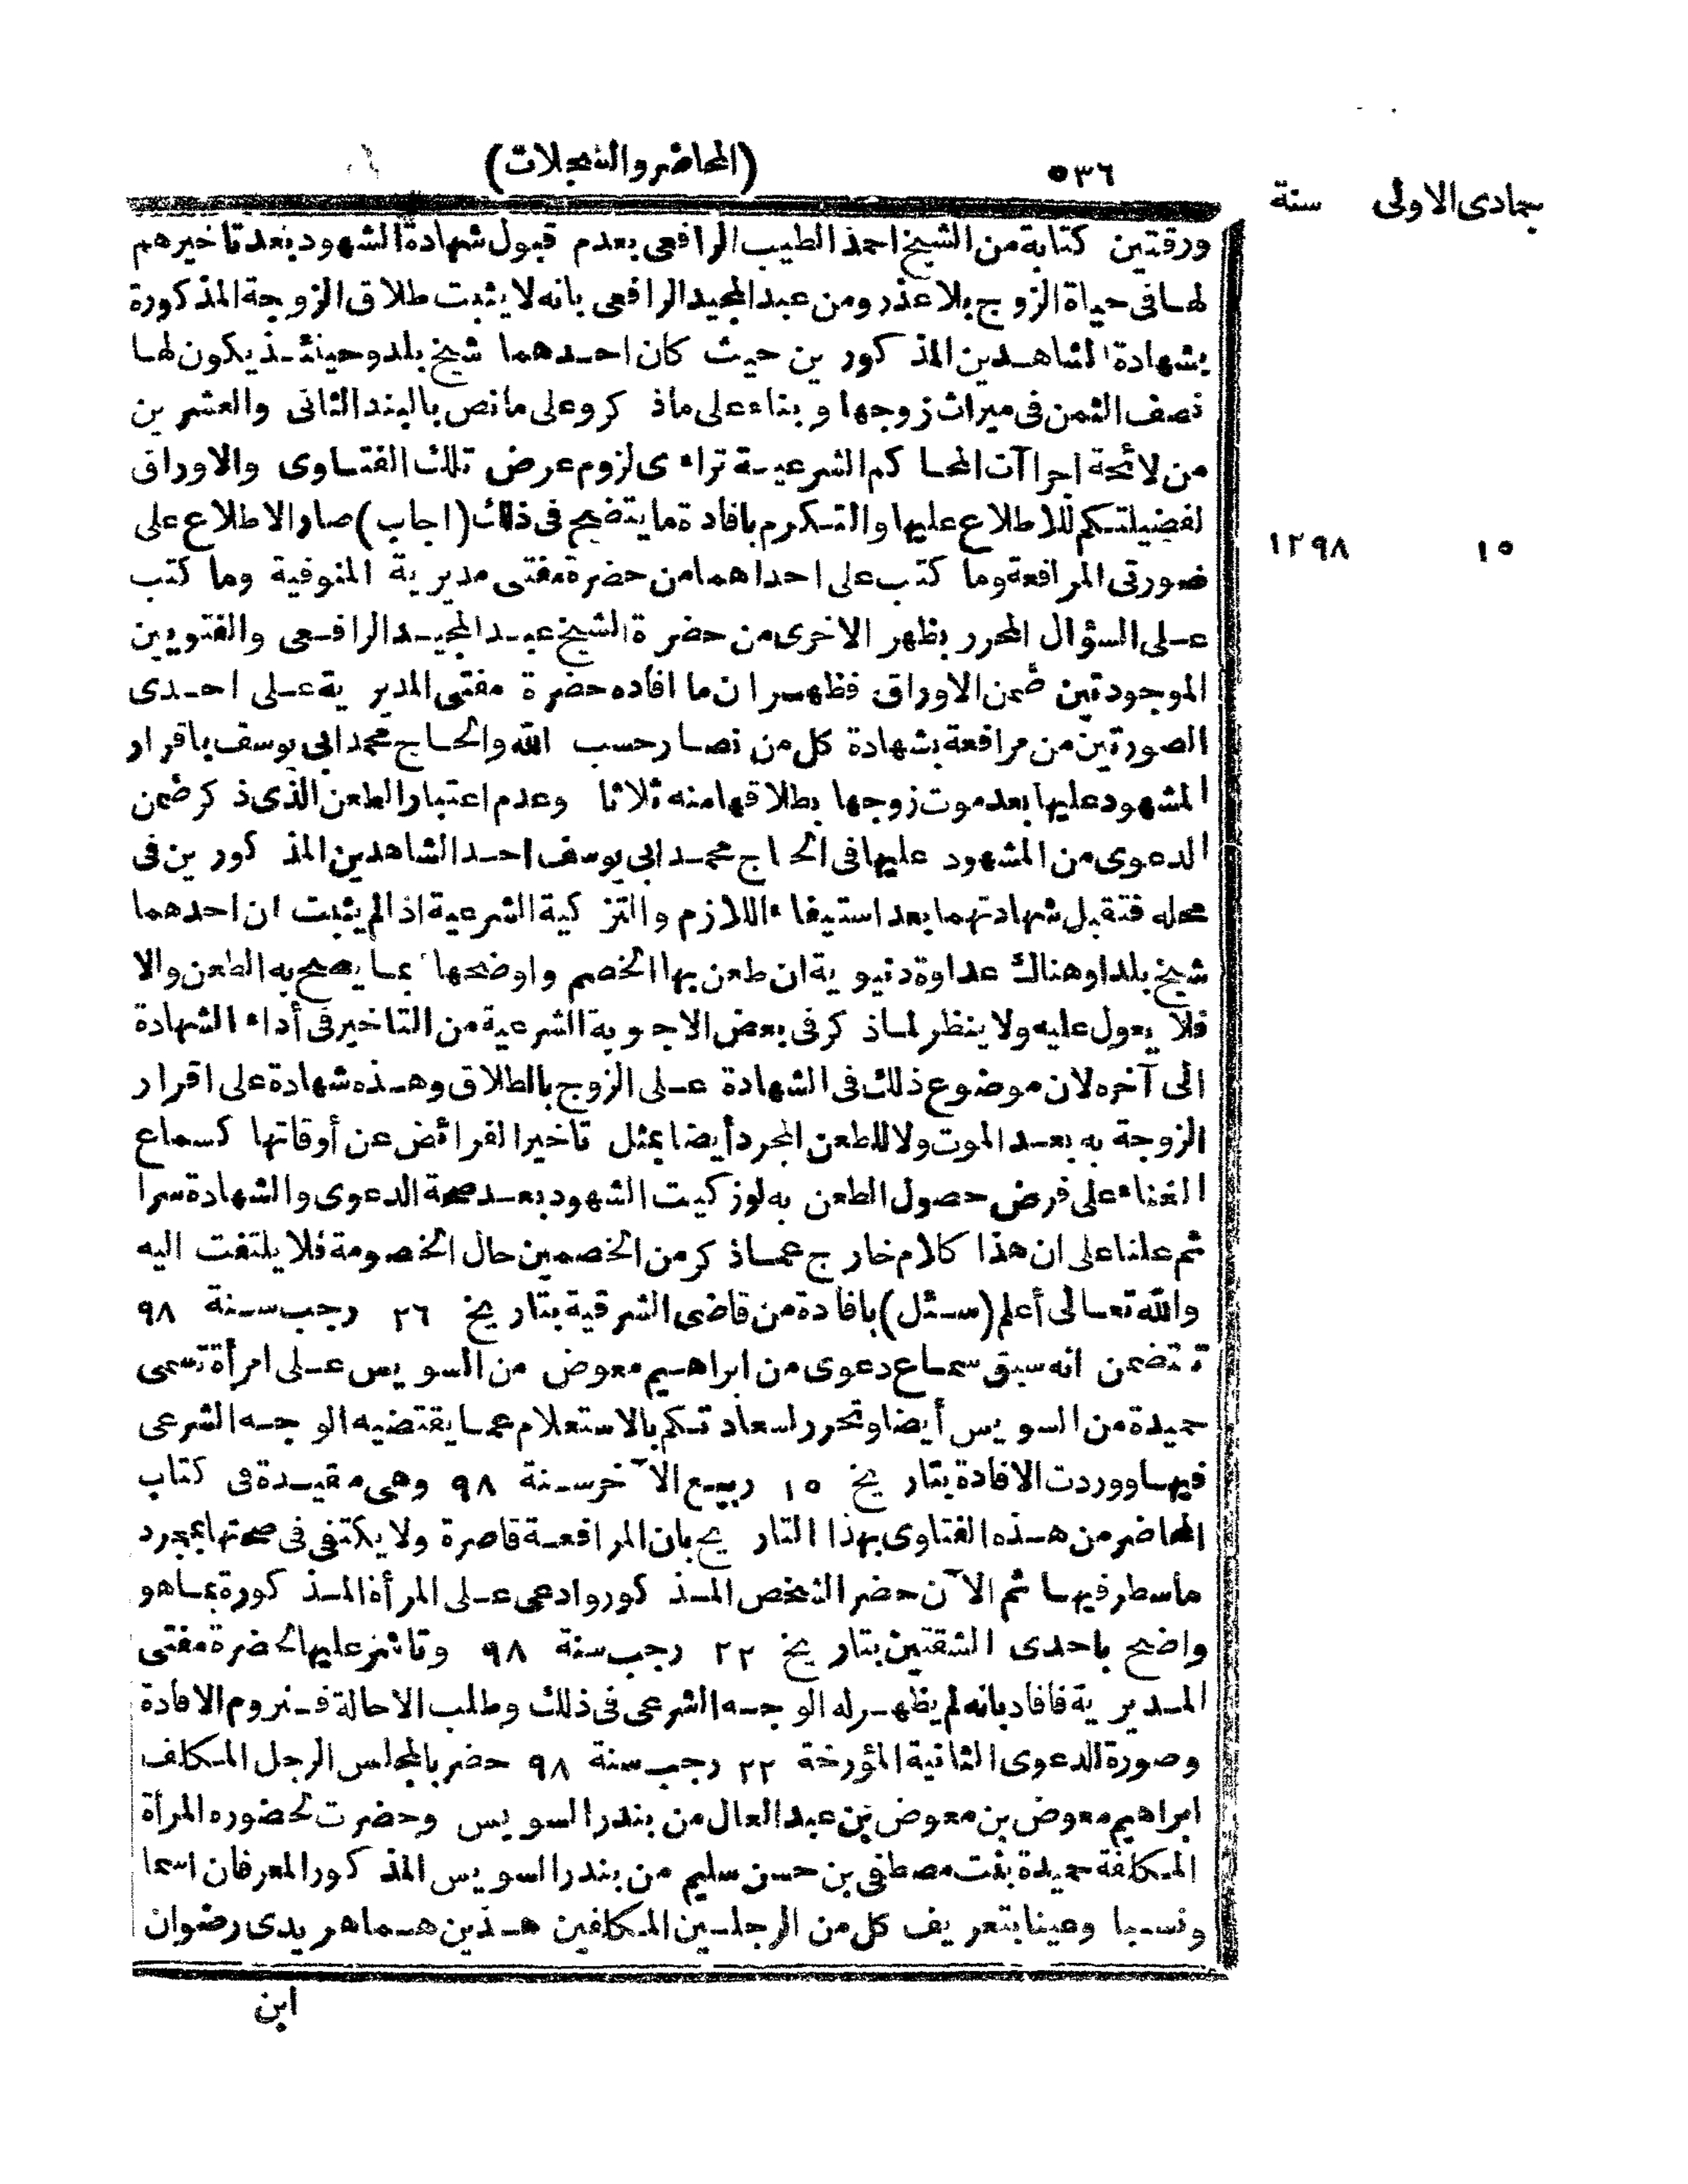 ٥٣٦ (المحاضر والسجلات)
جمادى الاولى سنة
ورقتين كتابة من الشيخ احمد الطيب الرافعى بعدم قبول شهادة الشهود بعد تاخيرهم
لها فى حياة الزوج بلا عذر ومن عبد المجيد الرافعى بانه لا يثبت طلاق الزوجة المذكورة
بشهادة الشاهدين المذكورين حيث كان احدهما شيخ بلد وحينئذ يكون لها
نصف الثمن فى ميراث زوجها وبناء على ماذكر وعلى مانص بالبند الثانى والعشرين
من لائحة اجراآت المحاكم الشرعية تراءى لزوم عرض تلك الفتاوى والاوراق
لفضيلتكم للاطلاع عليها والتكرم بافادة ما يتضح فى ذلك (اجاب) صار الاطلاع على
١٥ ١٢٩٨
صورتى المرافعة وما كتب على احداهما من حضرة مفتى مديرية المنوفية وما كتب
على السؤال المحرر بظهر الاخرى من حضرة الشيخ عبد المجيد الرافعى والفتويين
الموجودتين ضمن الاوراق فظهر ان ما افاده حضرة مفتى المديرية على احدى
الصورتين من مرافعة بشهادة كل من نصار حسب الله والحاج محمد ابى يوسف باقرار
المشهود عليها بعد موت زوجها بطلاقها منه ثلاثا وعدم اعتبار الطعن الذى ذكر ضمن
الدعوى من المشهود عليها فى الحاج محمد ابى يوسف احد الشاهدين المذكورين فى
محله فتقبل شهادتهما بعد استيفاء اللازم والتزكية الشرعية اذا لم يثبت ان احدهما
شيخ بلد او هناك عداوة دنيوية ان طعن بها الخصم واوضحها بما يصح به الطعن والا
فلا يعول عليه ولا ينظر لما ذكر فى بعض الاجوبة الشرعية من التاخير فى أداء الشهادة
الى آخره لان موضوع ذلك فى الشهادة على الزوج بالطلاق وهذه شهادة على اقرار
الزوجة به بعد الموت ولا للطعن المجرد أيضا بمثل تاخير الفرائض عن أوقاتها كسماع
الغناء على فرض حصول الطعن به لو زكيت الشهود بعد صحة الدعوى والشهادة سرا
ثم علنا على ان هذا كلام خارج عما ذكر من الخصمين حال الخصومة فلا يلتفت اليه
والله تعالى أعلم (سئل) بافادة من قاضى الشرقية بتاريخ ٢٦ رجب سنة ٩٨
تتضمن انه سبق سماع دعوى من ابراهيم معوض من السويس على امرأة تسمى
حميدة من السويس أيضا وتحرر لسعادتكم بالاستعلام عما يقتضيه الوجه الشرعى
فيها ووردت الافادة بتاريخ ١٥ ربيع الآخر سنة ٩٨ وهى مقيدة فى كتاب
المحاضر من هذه الفتاوى بهذا التاريخ بان المرافعة قاصرة ولا يكتفى فى صحتها بمجرد
ما سطر فيها ثم الآن حضر الشخص المذكور وادعى على المرأة المذكورة بما هو
واضح باحدى الشقتين بتاريخ ٢٢ رجب سنة ٩٨ وتاشر عليها لحضرة مفتى
المديرية فافاد بانه لم يظهر له الوجه الشرعى فى ذلك وطلب الاحالة فنروم الافادة
وصورة الدعوى الثانية المؤرخة ٢٢ رجب سنة ٩٨ حضر بالمجلس الرجل المكلف
ابراهيم معوض بن معوض بن عبد العال من بندر السويس وحضرت لحضوره المرأة
المكلفة حميدة بنت مصطفى بن حسن سليم من بندر السويس المذكور المعرفان اسما
ونسبا وعينا بتعريف كل من الرجلين المكلفين هذين هما هريدى رضوان
ابن